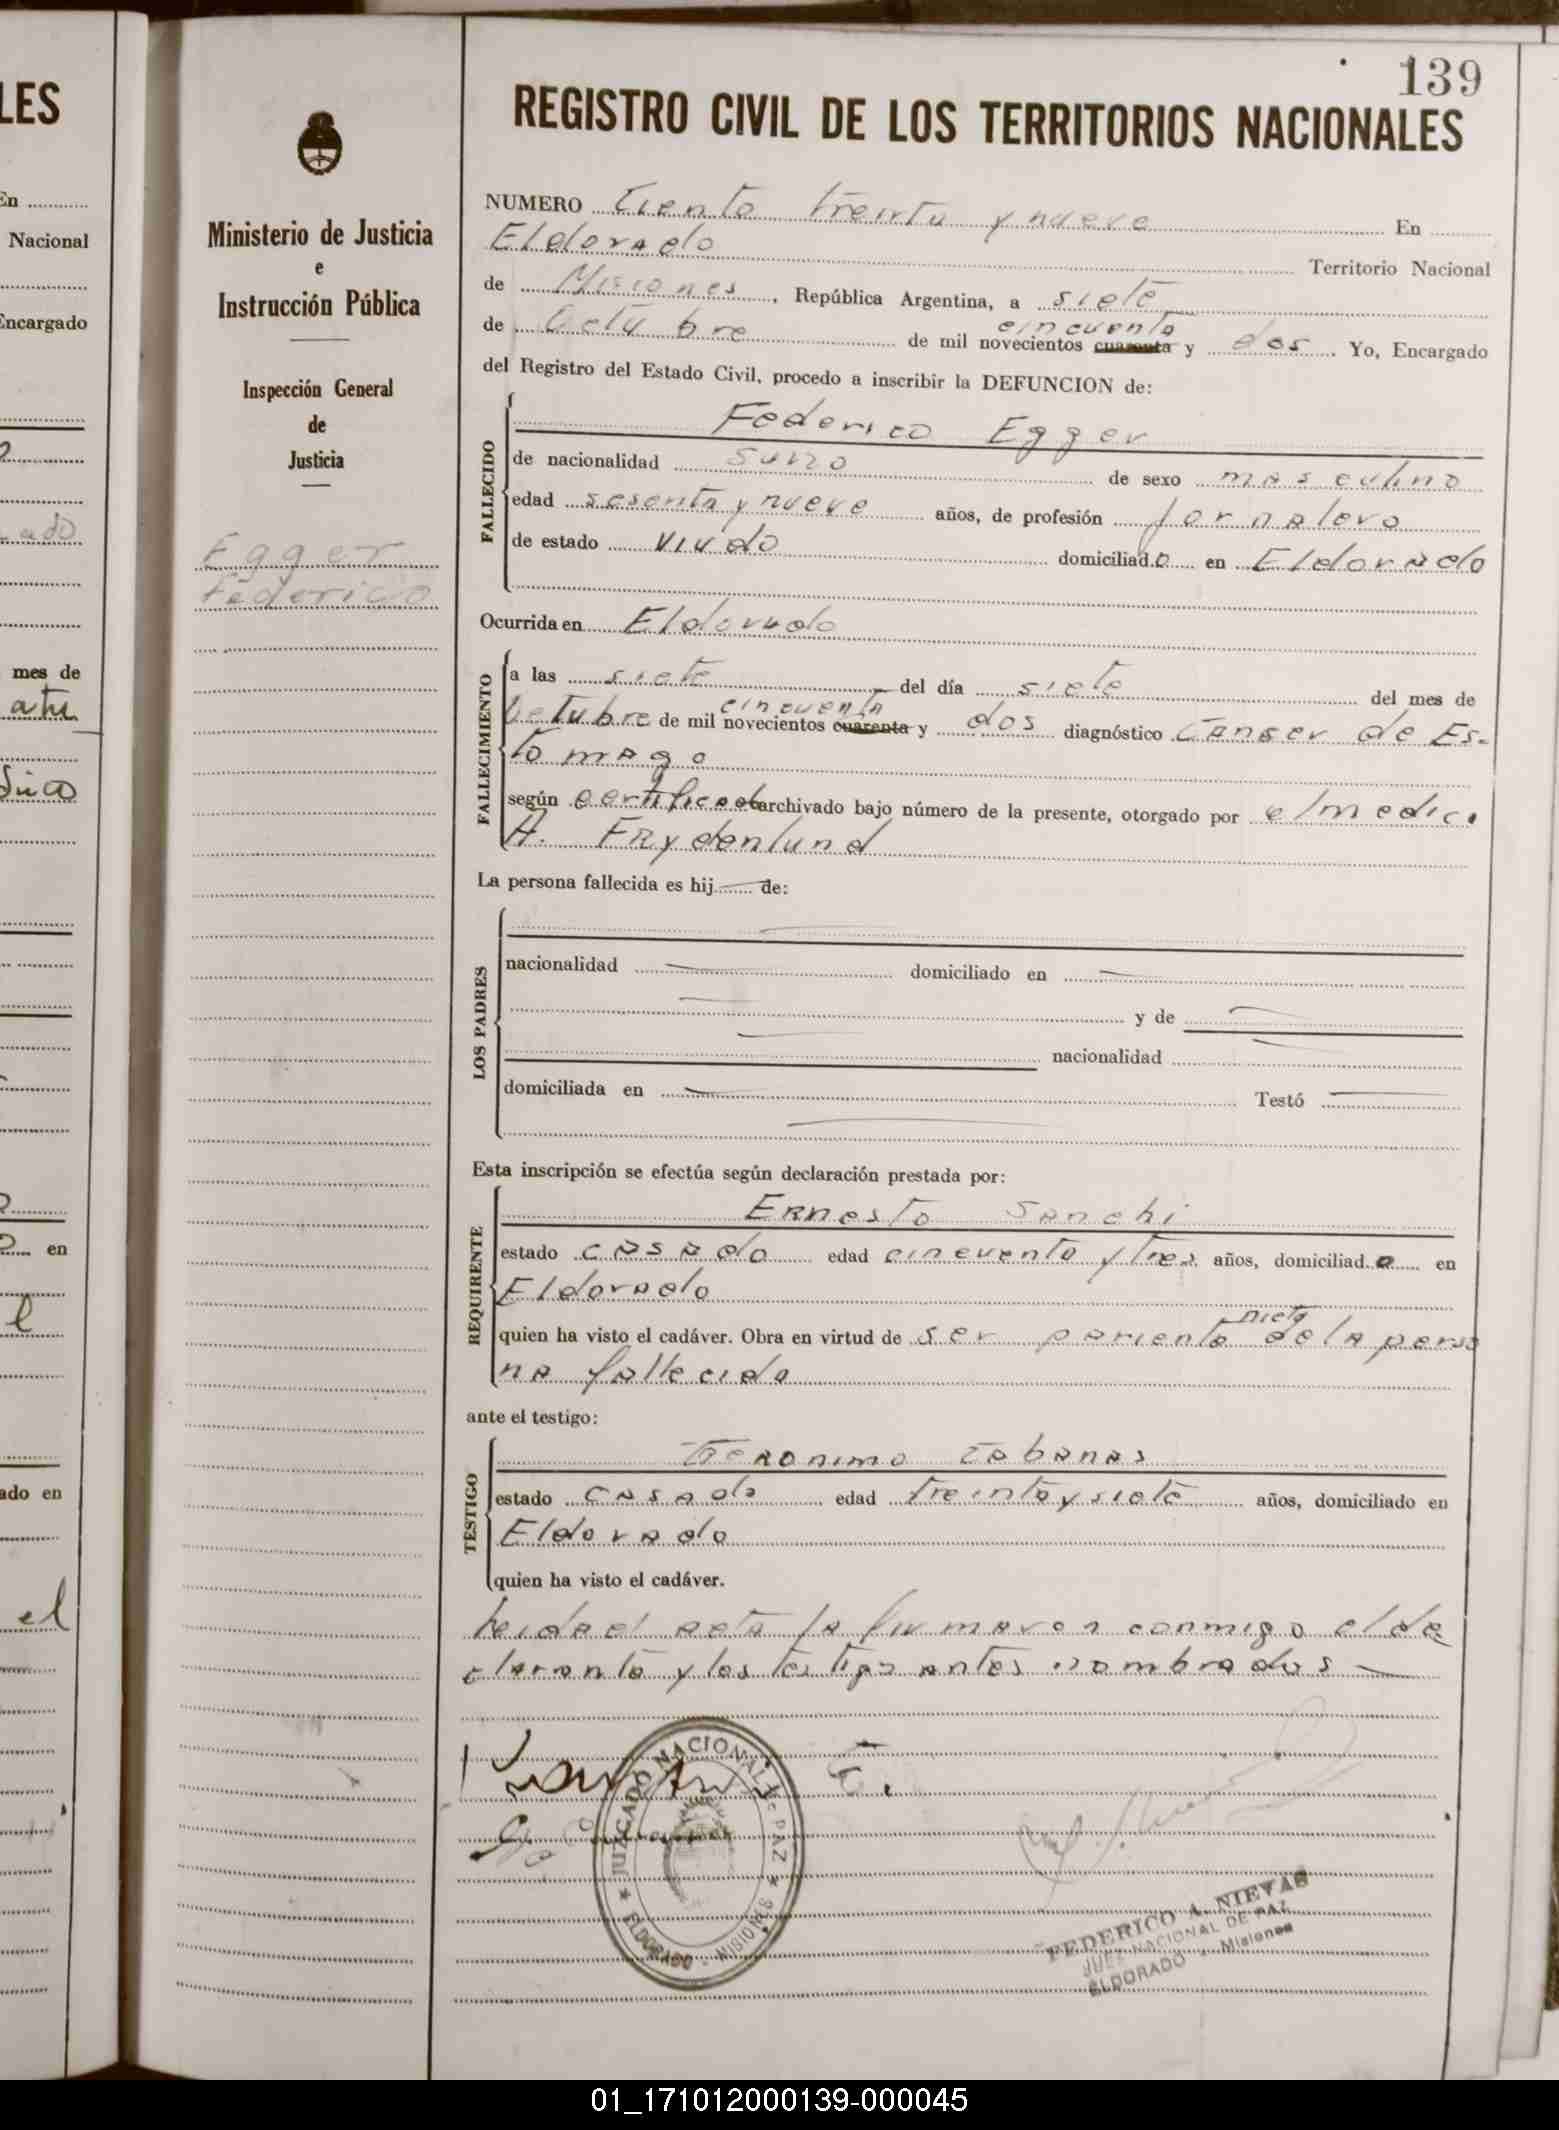 139
REGISTRO CIVIL DE LOS TERRITORIOS NACIONALES
NUMERO Ciento treinta y nueve En
Eldorado Territorio Nacional
de Misiones, República Argentina, a siete
cincuenta
de Octubre de mil novecientos cuarenta y dos. Yo, Encargado
del Registro del Estado Civil, procedo a inscribir la DEFUNCION de:
FALLECIDO
Federico Egger
de nacionalidad suizo de sexo masculino
edad sesenta y nueve años, de profesión jornalero
de estado viudo domiciliado en Eldorado
Ocurrida en Eldorado
FALLECIMIENTO
a las siete del día siete del mes de
cincuenta
Octubre de mil novecientos cuarenta y dos diagnóstico Canser de Es-
tomago
según certificado archivado bajo número de la presente, otorgado por el medico
A. Frydenlund
La persona fallecida es hij de:
LOS PADRES
nacionalidad domiciliado en
y de
nacionalidad
domiciliada en Testó
Esta inscripción se efectúa según declaración prestada por:
REQUIRENTE
Ernesto Sanchi
estado casado edad cincuenta y tres años, domiciliado en
Eldorado
quien ha visto el cadáver. Obra en virtud de ser pariente de la perso
na fallecida
ante el testigo:
TESTIGO
Geronimo Cabanas
estado casado edad treinta y siete años, domiciliado en
Eldorado
quien ha visto el cadáver.
Leida el acta la firmaron conmigo el de
clarante y los testigo antes nombrados
JUZGADO NACIONAL de PAZ
ELDORADO - MISIONES
FEDERICO A. NIEVAS
JUEZ NACIONAL DE PAZ
ELDORADO - Misiones
Ministerio de Justicia
e
Instrucción Pública
Inspección General
de
Justicia
Egger
Federico
LES
En
Nacional
Encargado
mes de
en
l
ado en
el
01_171012000139-000045